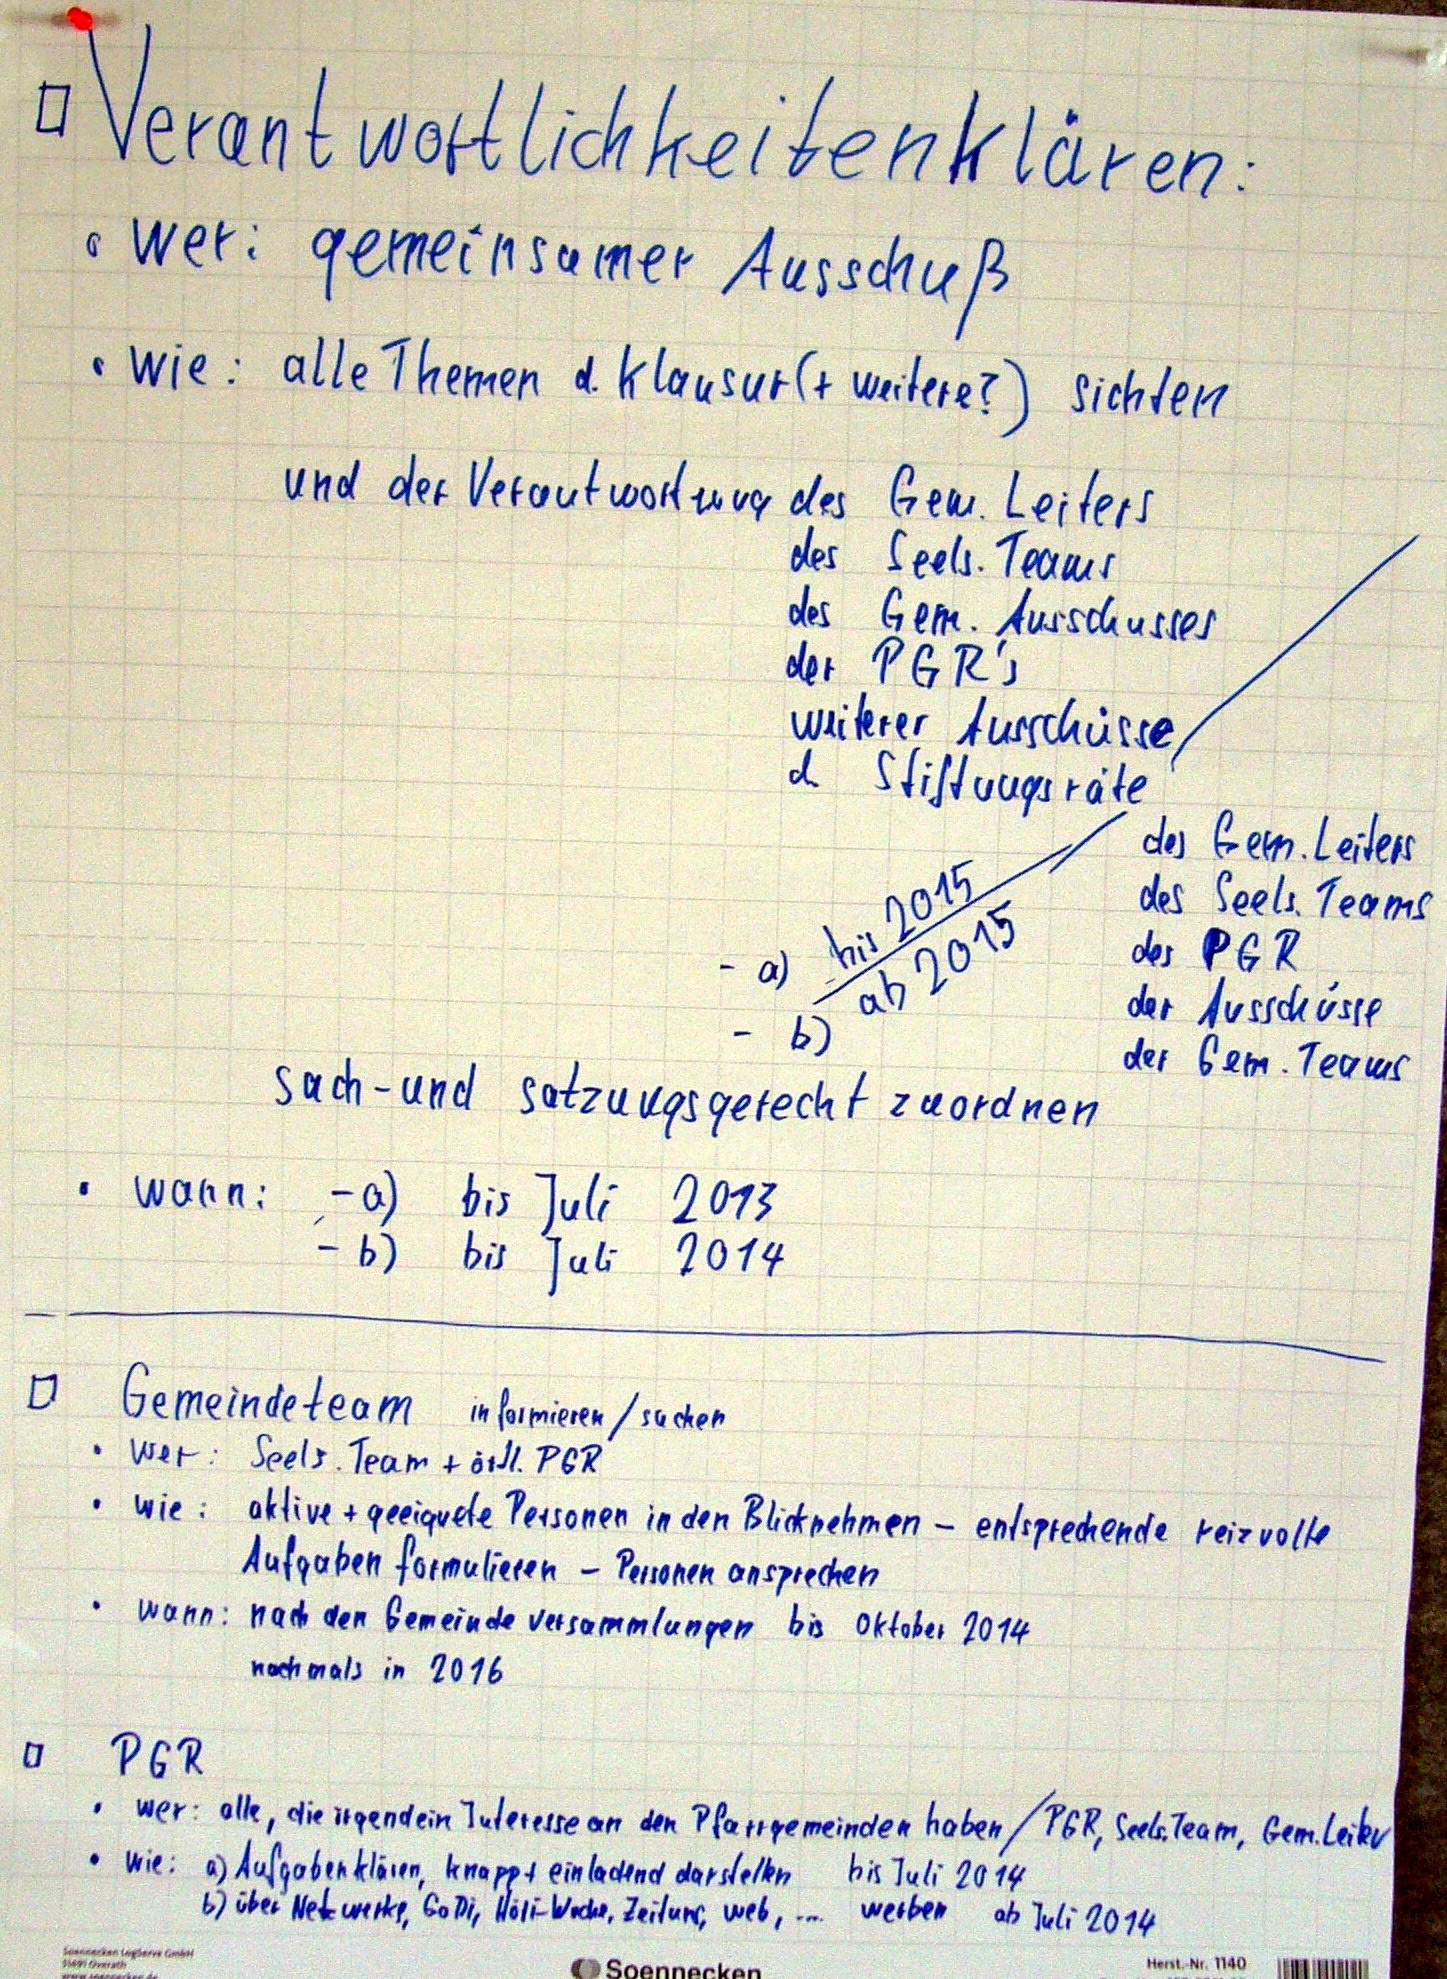 Verantwortlichkeiten klären:
wer: gemeinsamer Ausschuß
wie: alle Themen d. Klausur (+ weitere?) sichten
und der Verantwortung des Gem. Leiters
des Seels. Teams
des Gem. Ausschusses
der PGR's
weiterer Ausschüsse
d. Stiftungsräte
- a) bis 2015
- b) ab 2015
des Gem. Leiters
des Seels. Teams
des PGR
der Ausschüsse
der Gem. Teams
sach- und satzungsgerecht zuordnen
wann: - a) bis Juli 2013
- b) bis Juli 2014
Gemeindeteam informieren / suchen
wer: Seels. Team + örtl. PGR
wie: aktive + geeignete Personen in den Blick nehmen - entsprechende reizvolle
Aufgaben formulieren - Personen ansprechen
wann: nach den Gemeindeversammlungen bis Oktober 2014
nochmals in 2016
PGR
wer: alle, die irgendein Interesse an den Pfarrgemeinden haben / PGR, Seels. Team, Gem. Leiter
wie: a) Aufgaben klären, knapp + einladend darstellen bis Juli 2014
b) über Netzwerke, GoDi, Höri-Woche, Zeitung, web, ... werben ab Juli 2014
Soennecken LogServe GmbH
51491 Overath
www.soennecken.de
Soennecken
Herst.-Nr. 1140